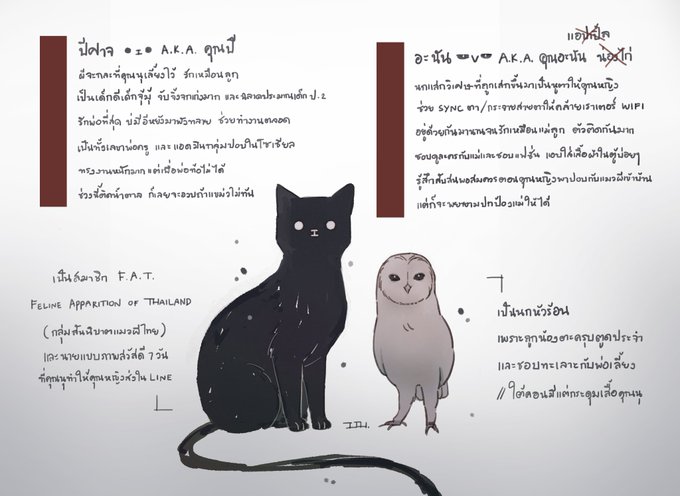 ปีศาจ •ɪ• A.K.A. คุณปี
ผีจะกละที่คุณนุเลี้ยงไว้ รักเหมือนลูก
เป็นเด็กดีเด็กจุ้มุ้ จับจิ้งจกเก่งมาก และฉลาดประมาณเด็ก ป.2
รักพ่อที่สุด ช่วยทำงานตลอด
เป็นทั้งเลขาพ่อครู และแอดมินกลุ่มปอบในโซเชียล
ทรงงานหนักมาก แต่เพื่อพ่อท้อไม่ได้
ช่วงนี้ติดน้ำตาล ก็เลยจะอวบถ้าแมวไม่ทัน
แอปเปิ้ล
อะนัน •v• A.K.A. คุณอะนัน น้องไก่
นกแสกวิเศษที่ถูกเสกขึ้นมาเป็นหูตาให้คุณหญิง
ช่วย SYNC ตา/กระจายสายตาให้คล้ายเราเตอร์ WIFI
อยู่ด้วยกันมานานจนรักเหมือนแม่ลูก ตัวติดกันมาก
ชอบดูละครกับแม่และชอบแฟชั่น แอบใส่เสื้อผ้าในตู้บ่อยๆ
รู้สึกสับสนพอสมควรตอนคุณหญิงพาปอบกับแมวผีเข้าบ้าน
แต่ก็จะพยายามปกป้องแม่ให้ได้
เป็นสมาชิก F.A.T.
FELINE APPARITION OF THAILAND
(กลุ่มสันนิบาตแมวผีไทย)
และนายแบบภาพสวัสดี 7 วัน
ที่คุณนุทำให้คุณหญิงส่งใน LINE
เป็นนกหัวร้อน
เพราะถูกน้องตะครุบตูดประจำ
และชอบทะเลาะกับพ่อเลี้ยง
// ใต้คอนมีแต่กระดุมเสื้อคุณนุ